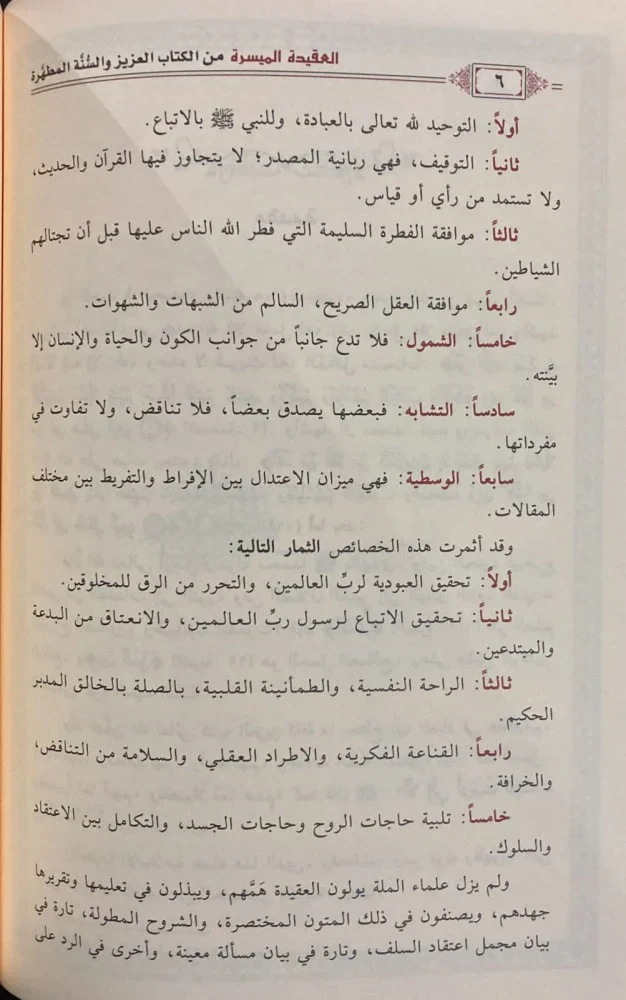 العقيدة الميسرة من الكتاب العزيز والسُّنَّة المطهَّرة
٦
أولاً: التوحيد لله تعالى بالعبادة، وللنبي ﷺ بالاتباع.
ثانياً: التوقيف، فهي ربانية المصدر؛ لا يتجاوز فيها القرآن والحديث،
ولا تستمد من رأي أو قياس.
ثالثاً: موافقة الفطرة السليمة التي فطر الله الناس عليها قبل أن تجتالهم
الشياطين.
رابعاً: موافقة العقل الصريح، السالم من الشبهات والشهوات.
خامساً: الشمول: فلا تدع جانباً من جوانب الكون والحياة والإنسان إلا
بيَّنته.
سادساً: التشابه: فبعضها يصدق بعضاً، فلا تناقض، ولا تفاوت في
مفرداتها.
سابعاً: الوسطية: فهي ميزان الاعتدال بين الإفراط والتفريط بين مختلف
المقالات.
وقد أثمرت هذه الخصائص الثمار التالية:
أولاً: تحقيق العبودية لربِّ العالمين، والتحرر من الرق للمخلوقين.
ثانياً: تحقيق الاتباع لرسول ربِّ العالمين، والانعتاق من البدعة
والمبتدعين.
ثالثاً: الراحة النفسية، والطمأنينة القلبية، بالصلة بالخالق المدبر
الحكيم.
رابعاً: القناعة الفكرية، والاطراد العقلي، والسلامة من التناقض،
والخرافة.
خامساً: تلبية حاجات الروح وحاجات الجسد، والتكامل بين الاعتقاد
والسلوك.
ولم يزل علماء الملة يولون العقيدة هَمَّهم، ويبذلون في تعليمها وتقريرها
جهدهم، ويصنفون في ذلك المتون المختصرة، والشروح المطولة، تارة في
بيان مجمل اعتقاد السلف، وتارة في بيان مسألة معينة، وأخرى في الرد على